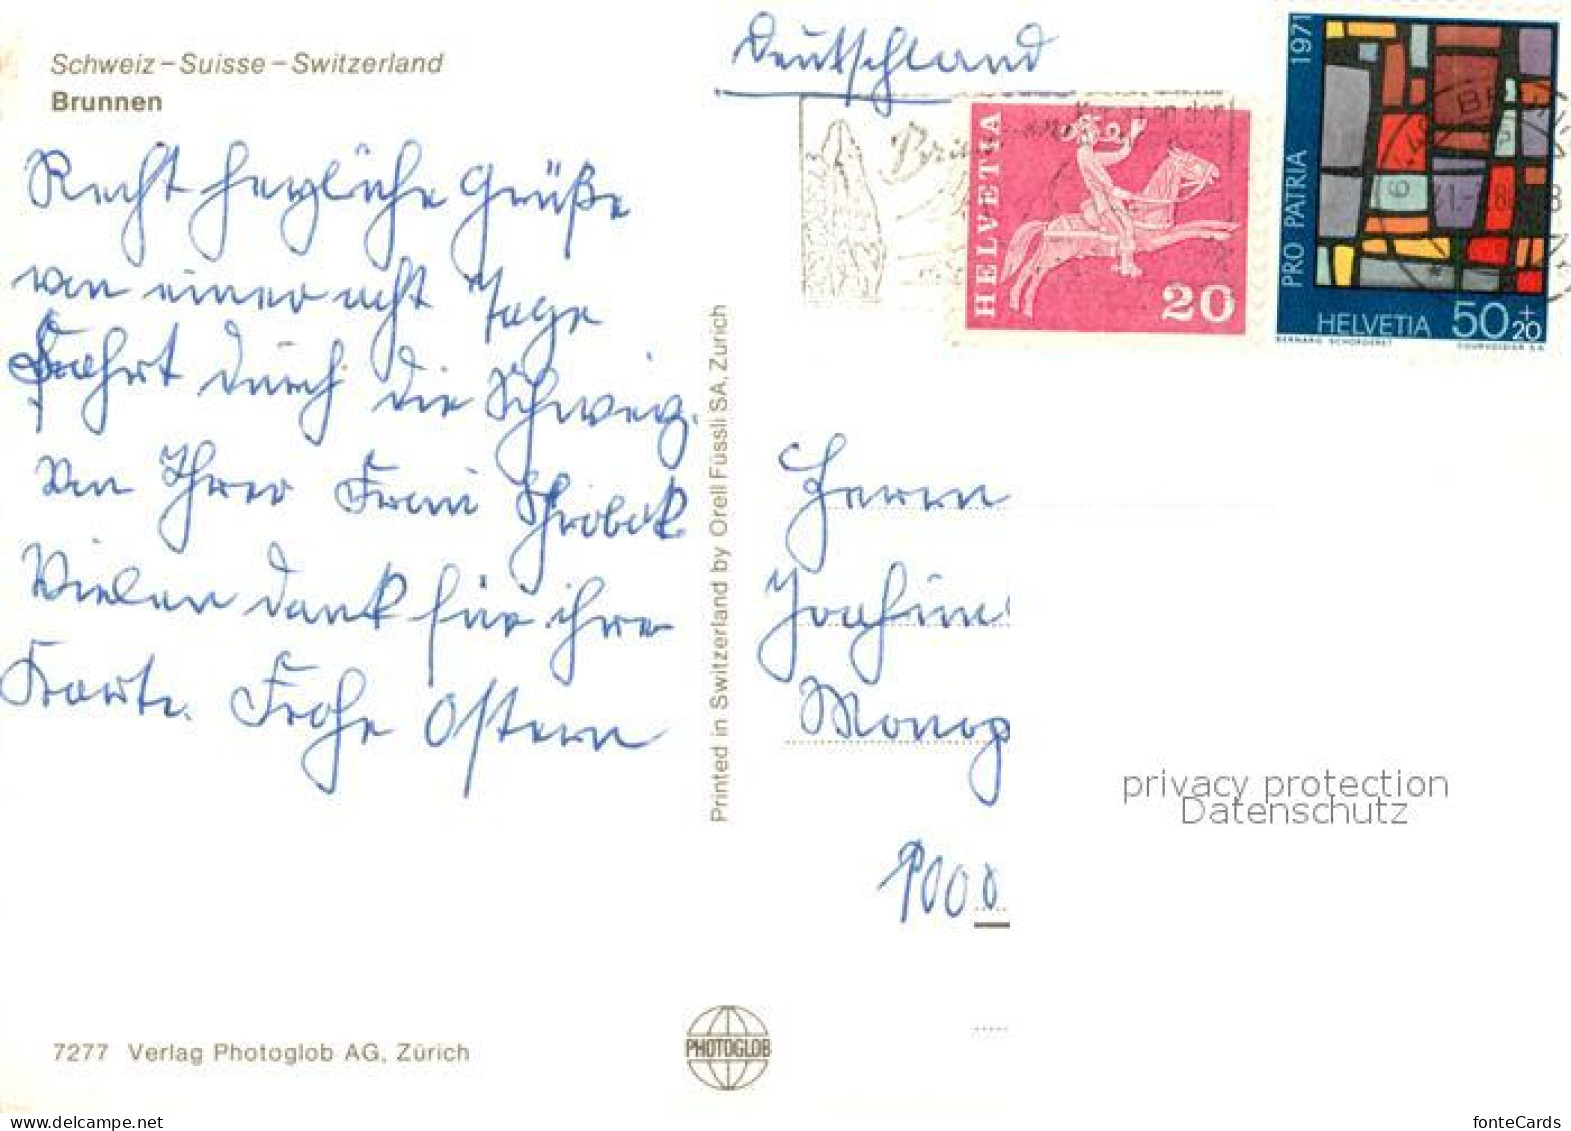 Schweiz – Suisse – Switzerland
Brunnen
Recht herzliche Grüße
von einer acht Tage
Fahrt durch die Schweiz.
Von Ihrer Frau
Vielen dank für ihre
Karte. Frohe Ostern
Printed in Switzerland by Orell Füssli SA, Zürich
Deutschland
HELVETIA
20
PRO PATRIA 1971
HELVETIA 50+20
BERNARD SCHORDERET
COURVOISIER S.A.
Herrn
Joachim
Monog
privacy protection
Datenschutz
7277 Verlag Photoglob AG, Zürich
PHOTOGLOB
www.delcampe.net
fonteCards